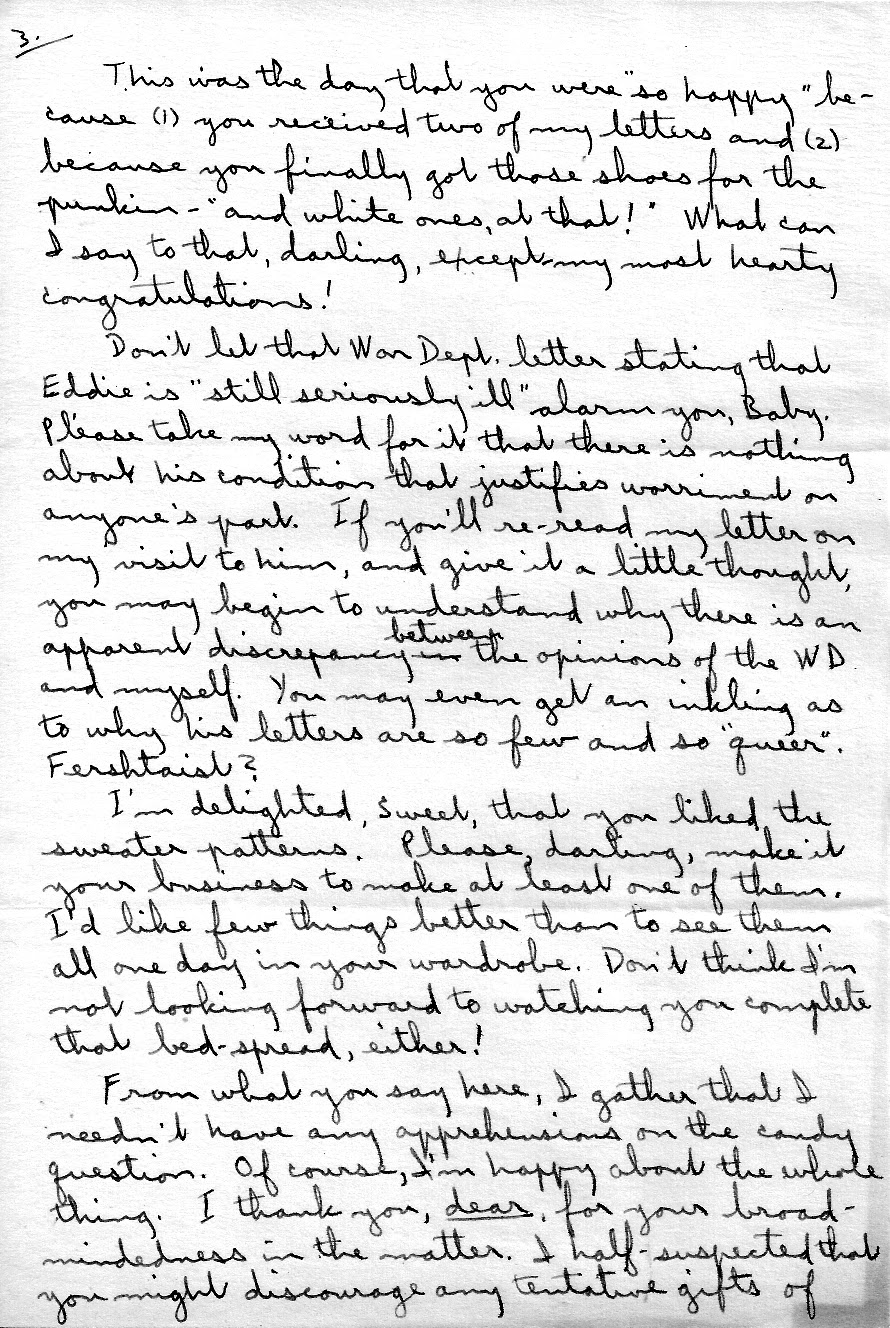 3.
This was the day that you were "so happy" be-
cause (1) you received two of my letters and (2)
because you finally got those shoes for the
punkin - "and white ones, at that!" What can
I say to that, darling, except my most hearty
congratulations!
Don't let that War Dept. letter stating that
Eddie is "still seriously ill" alarm you, Baby.
Please take my word for it that there is nothing
about his condition that justifies worriment on
anyone's part. If you'll re-read my letter on
my visit to him, and give it a little thought,
you may begin to understand why there is an
between
apparent discrepancy in the opinions of the WD
and myself. You may even get an inkling as
to why his letters are so few and so "queer".
Fershtaist?
I'm delighted, Sweet, that you liked the
sweater patterns. Please, darling, make it
your business to make at least one of them.
I'd like few things better than to see them
all one day in your wardrobe. Don't think I'm
not looking forward to watching you complete
that bed-spread, either!
From what you say here, I gather that I
needn't have any apprehensions on the candy
question. Of course, I'm happy about the whole
thing. I thank you, dear, for your broad-
mindedness in the matter. I half-suspected that
you might discourage any tentative gifts of